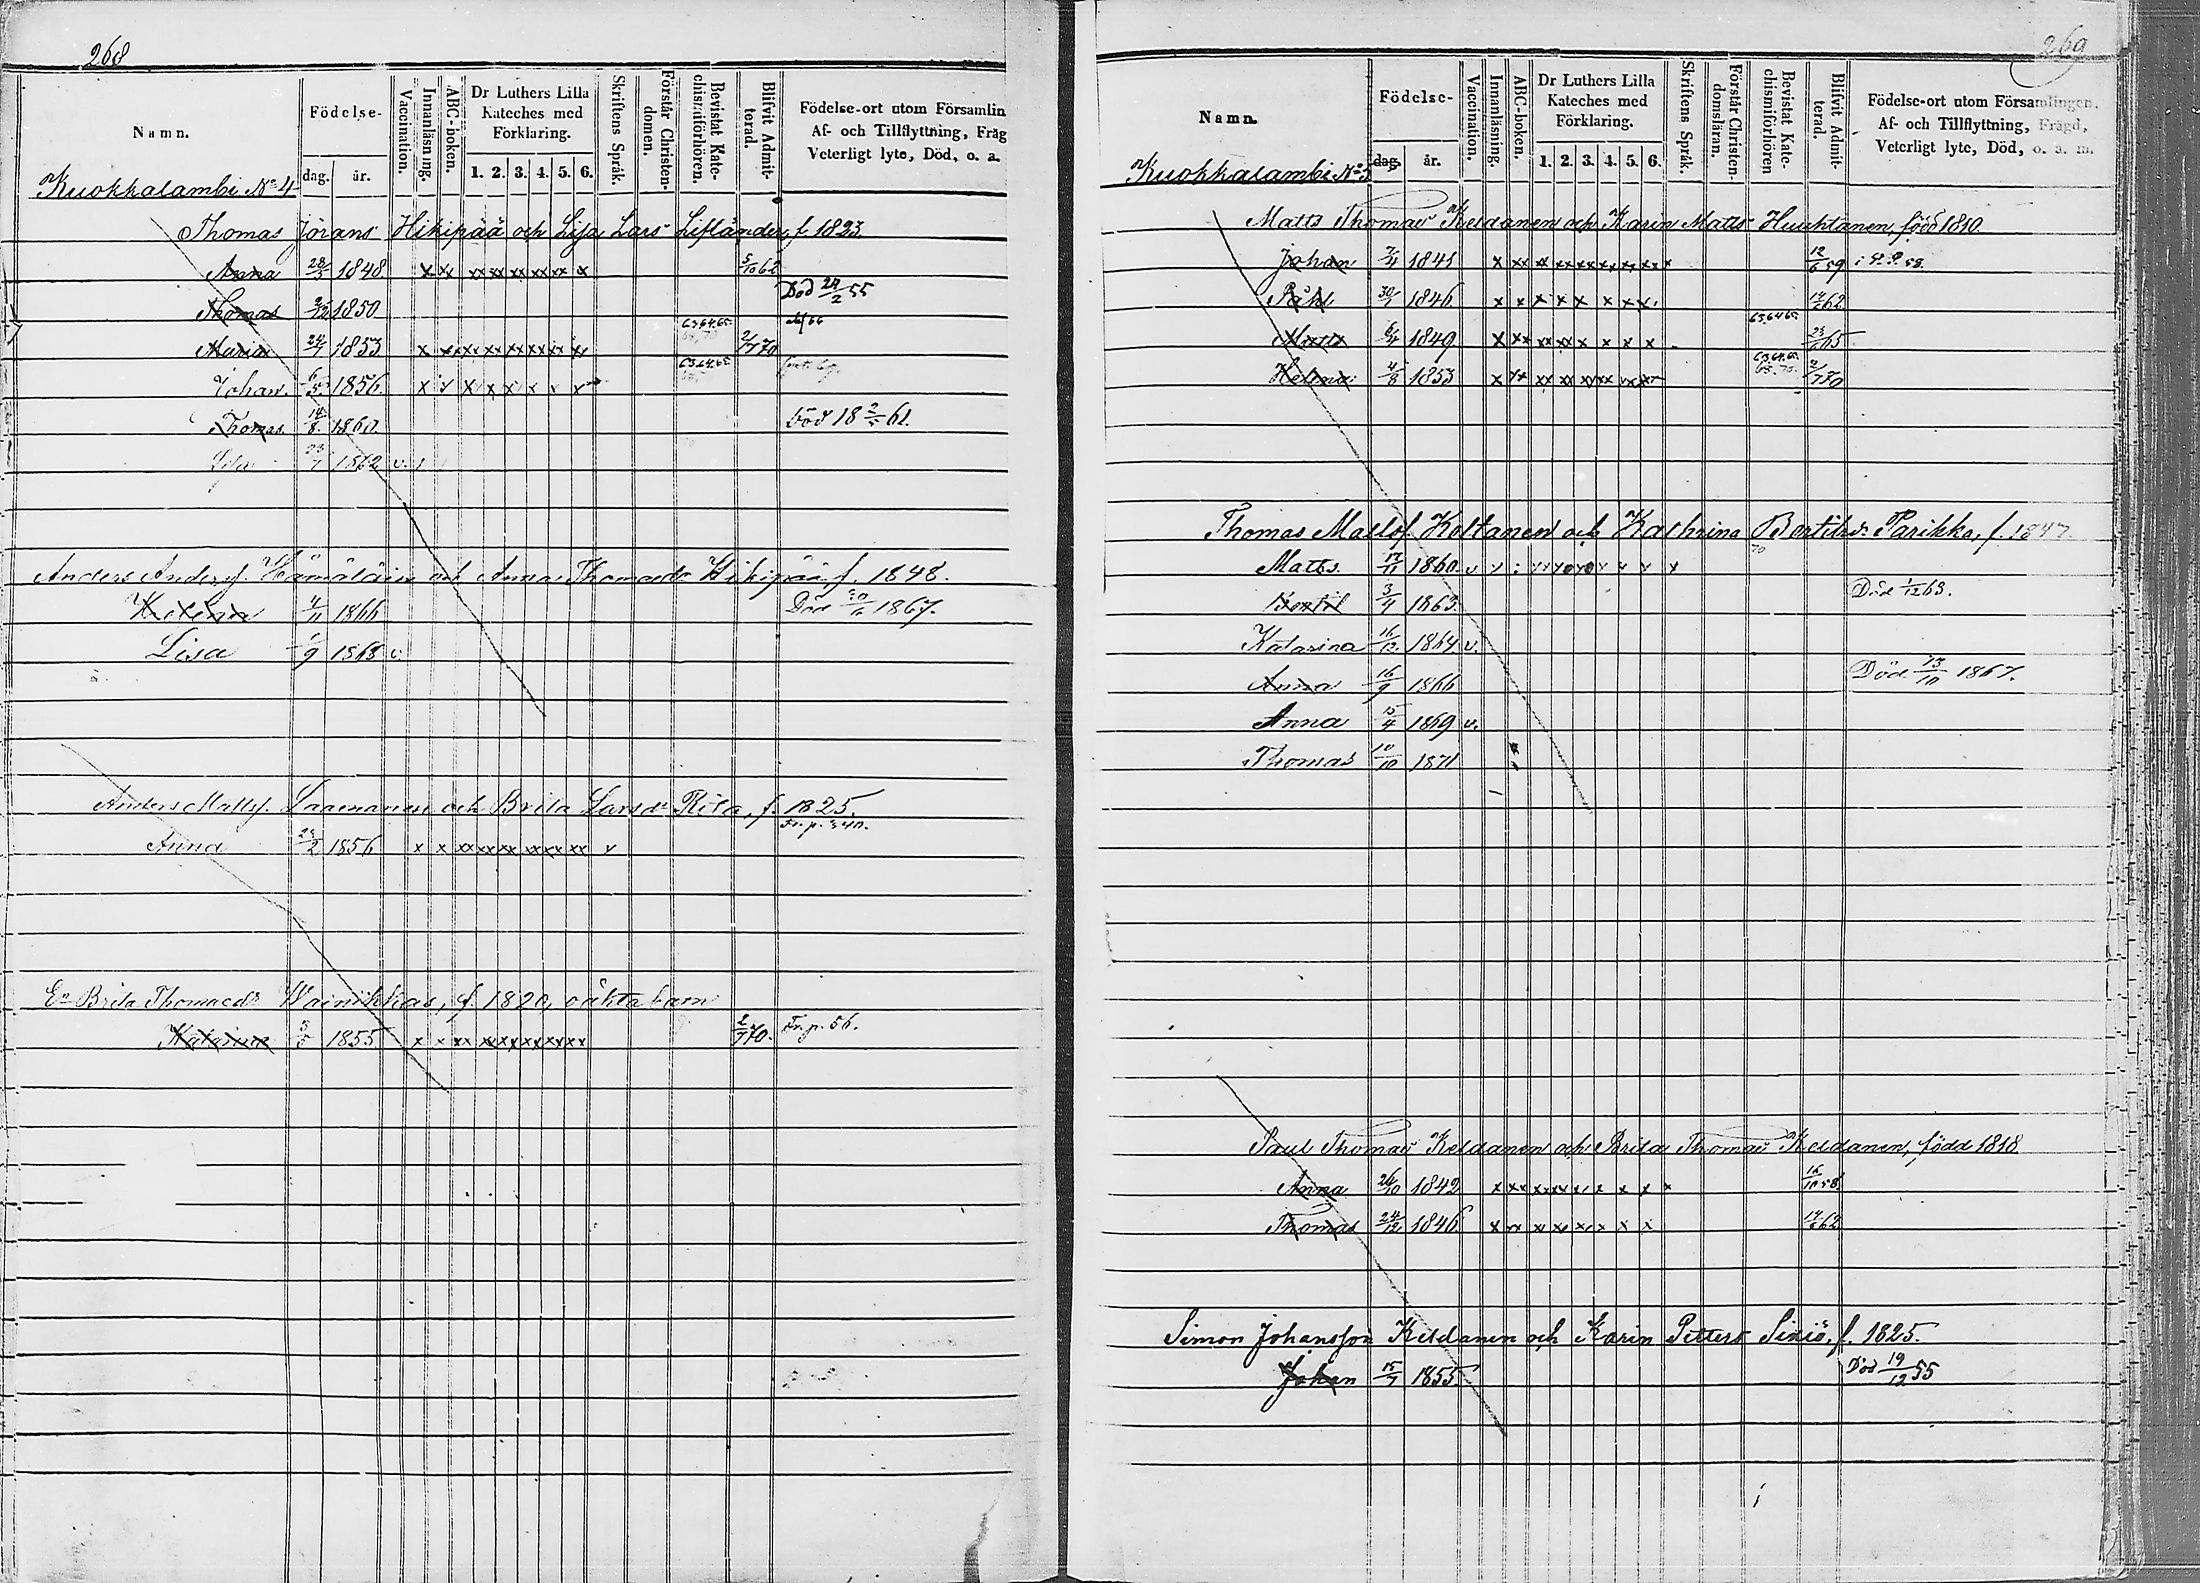 268
Namn.
Födelse-
dag. år.
Vaccination.
Innanläsning.
ABC-boken.
Dr Luthers Lilla
Kateches med
Förklaring.
1. 2. 3. 4. 5. 6.
Skriftens Språk.
Förstår Christen-
domen.
Bevistat Kate-
chismiförhören.
Blifvit Admit-
terad.
Födelse-ort utom Församlin
Af- och Tillflyttning, Fräg
Veterligt lyte, Död, o. a.
Kuokkalambi No 4
Thomas Jörans Hikipää och Lisa Lars Lifländer, f. 1823.
Anna 28/3 1848 x xx xx xx xx xx x 5/10 62
Thomas 1850 Död 24/2 55
Maria 24/7 1853 x xx xx xx xx xx xx 63.64.65. 2/7 70
Johan. 6/5 1856. x x x x x x x 63.64.65.
Thomas 14/8 1860. Död 18 61.
Lisa 1862 v.
Anders Andersf. Hämäläin och Anna Thomasdr Hikipää f. 1848.
Helena 4/11 1866 Död 1867.
Lisa 1/9 1868 v.
Anders Mattsf. Laamanen och Brita Larsdr Rita, f. 1825.
Anna 1856 x x xx xx xx xx xx xx v
Fr. p. 340.
Brita Thomaedr Wainikkas, f. 1820, oäkta barn
Katarina 3/5 1855 x x xx xx xx xx xx 2/7 70. Fr. p. 56.
269
Namn.
Födelse-
dag. år.
Vaccination.
Innanläsning.
ABC-boken.
Dr Luthers Lilla
Kateches med
Förklaring.
1. 2. 3. 4. 5. 6.
Skriftens Språk.
Förstår Christen-
domsläran.
Bevistat Kate-
chismiförhören
Blifvit Admit-
terad.
Födelse-ort utom Församlingen.
Af- och Tillflyttning, Frägd,
Veterligt lyte, Död, o. a. m.
Kuokkalambi No 5
Matts Thomas Keldanen och Karin Matts Huuhtanen, född 1810.
Johan 7/4 1841 x xx xx xx xx xx xx x 12/6 59
Påhl 30/1 1846 x x x x x x x x 17/6 62
Matts 6/4 1849 x xx xx xx x x x 63.64.65. 65
Helena 4/8 1853 x xx xx xx xx xx 63.64.65. 2/7 70
Thomas Matsf. Keltanen och Kathrina Bertilsdr Parikka, f. 1847.
Matts 17/11 1860.
Bertil 3/4 1863. Död 1/12 63.
Katarina 16/12 1864 v.
Anna 16/9 1866 Död 13/10 1867.
Anna 15/4 1869 v.
Thomas 10/10 1871
Paul Thomas Keldanen och Brita Thomas Keldanen, född 1818.
Anna 26/10 1842 x xx x xx x x x x x 16/10 58
Thomas 24/12 1846 x xx xx xx x x x x 17/6 62
Simon Johansson Keldanen och Karin Petters Siniö, f. 1825.
Johan 15/7 1855. Död 19/12 55